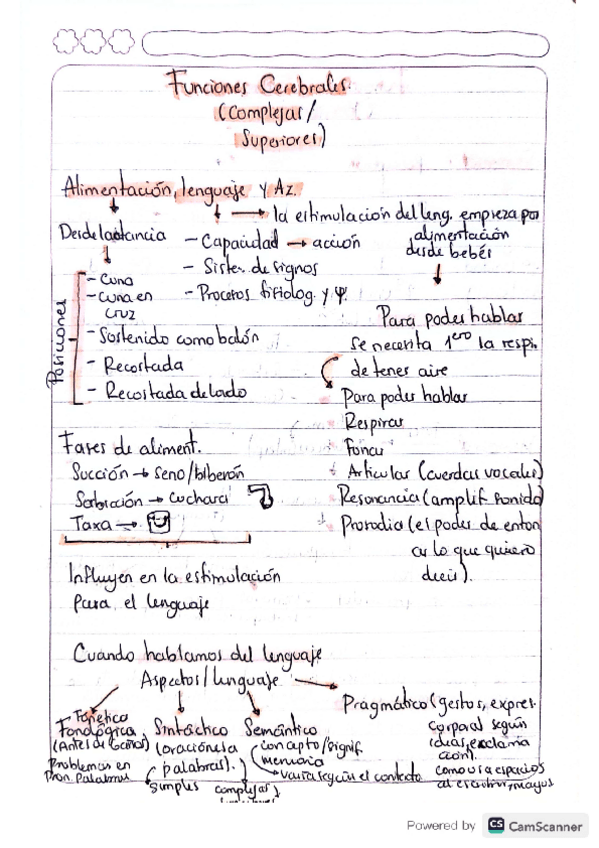 Funciones Cerebrales.
(Complejas/
Superiores)
Alimentación, lenguaje y Az.
→ la estimulación del leng. empieza por
alimentación
desde bebés
Desde lactancia
- Capacidad → acción
- Sistem. de signos
- Procesos fisiolog. y Ψ.
Posiciones
- Cuna
- Cuna en
cruz
- Sostenido como balón
- Recostada
- Recostada de lado
Para poder hablar
Se necesita 1ero la respir.
de tener aire
Para poder hablar
Respirar
Fonar
Articular (cuerdas vocales)
Resonancia (amplif. sonido)
Prosodia (el poder de enton
ar lo que quiero
decir).
Fases de aliment.
Succión → seno/biberón
Sorbición → cuchara
Taza →
Influyen en la estimulación
para el lenguaje
Cuando hablamos del lenguaje
Aspectos/lenguaje
Fonético
Fonológica
(Antes de
Problemas en
Pron. Palabras
Sintáctico
(oraciones/a
palabras).
simples complejas)
Semántico
(concepto/signif.
memoria
→ varía según el contexto
Pragmático (gestos, expres.
corporal según
ideas, exclama
ción).
como usa espacios
al escribir, mayus
Powered by CS CamScanner